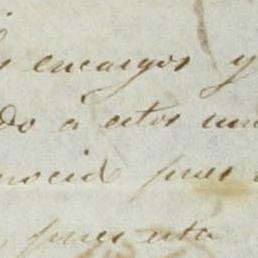 s encargos y
do à estos un
nocido pues
pues esta